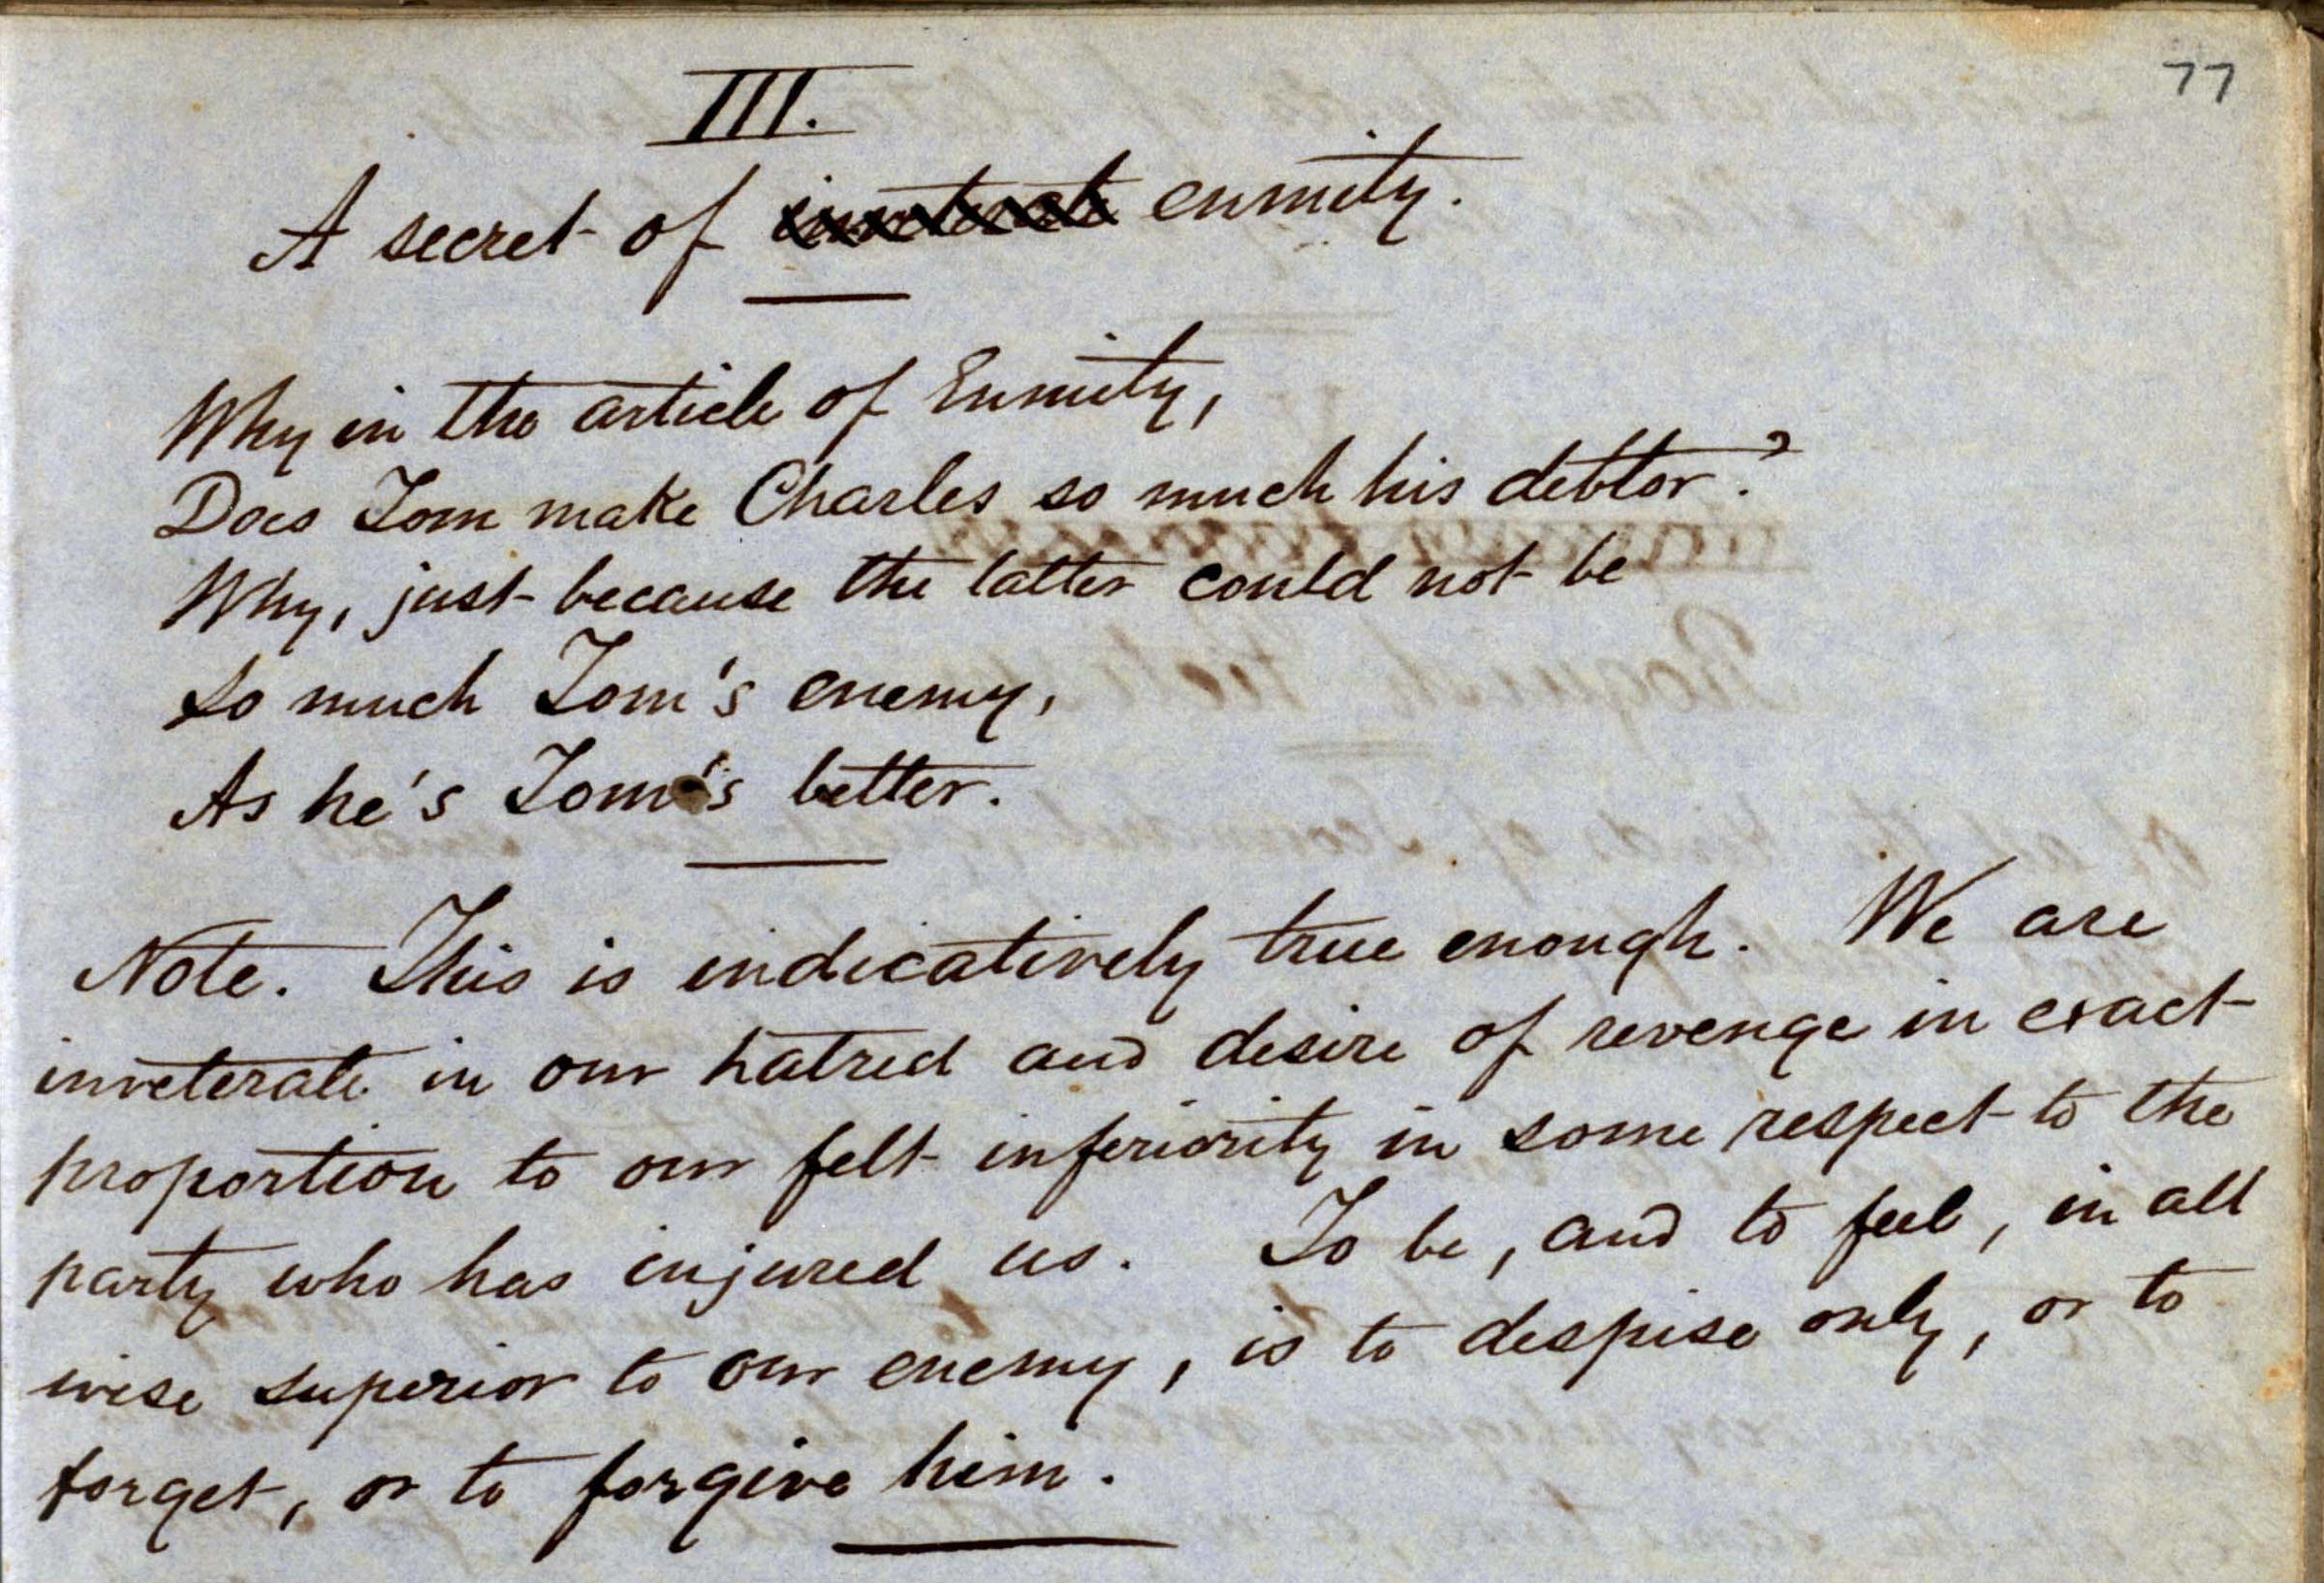 77
III.
A secret of inveterate enmity.
Why in the article of Enmity,
Does Tom make Charles so much his debtor?
Why, just because the latter could not be
So much Tom's enemy,
As he's Tom's better.
Note. This is indicatively true enough. We are
inveterate in our hatred and desire of revenge in exact
proportion to our felt inferiority in some respect to the
party who has injured us. To be, and to feel, in all
wise superior to our enemy, is to despise only, or to
forget, or to forgive him.